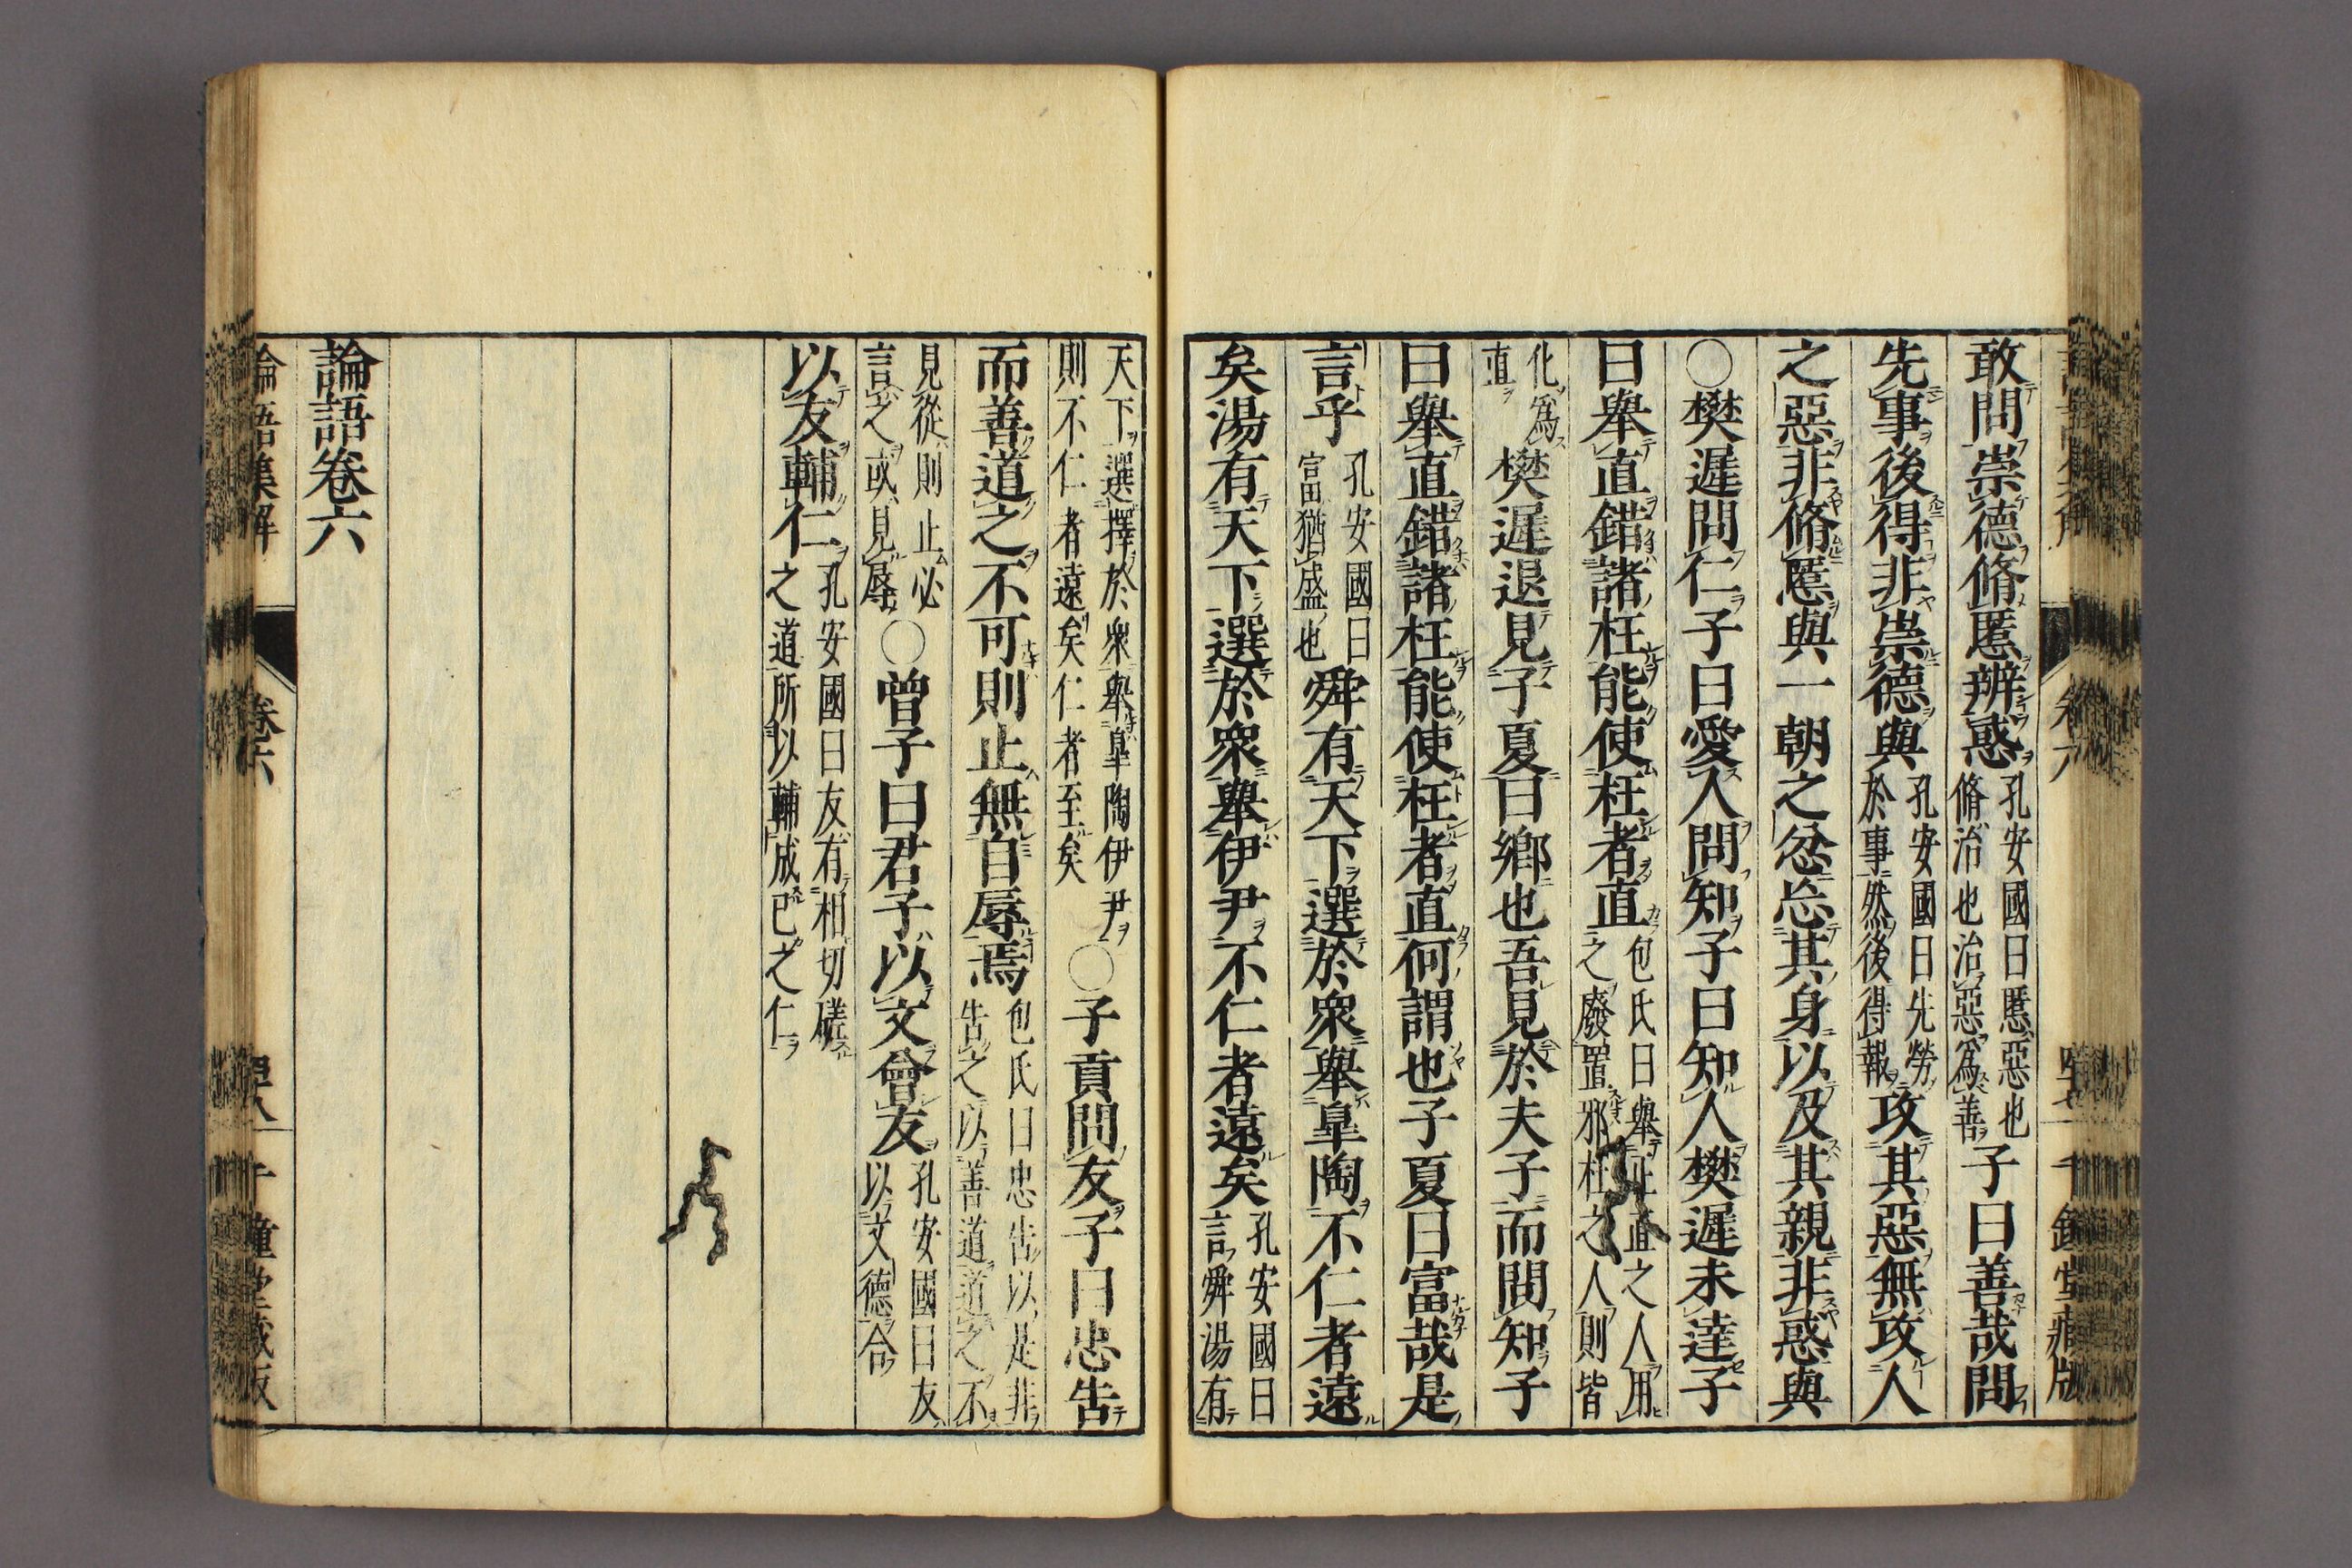 敢問崇德脩慝辨惑孔安國曰慝惡也脩治也治惡爲善子曰善哉問
先事後得非崇德與孔安國曰先勞於事然後得報攻其惡無攻人
之惡非脩慝與一朝之忿忘其身以及其親非惑與
○樊遲問仁子曰愛人問知子曰知人樊遲未達子
曰舉直錯諸枉能使枉者直包氏曰舉正直之人用之廢置邪枉之人則皆
化爲直樊遲退見子夏曰鄕也吾見於夫子而問知子
曰舉直錯諸枉能使枉者直何謂也子夏曰富哉是
言乎孔安國曰富猶盛也舜有天下選於衆舉皐陶不仁者遠
矣湯有天下選於衆舉伊尹不仁者遠矣孔安國曰言舜湯有
天下選擇於衆舉皐陶伊尹則不仁者遠矣仁者至矣○子貢問友子曰忠告
而善道之不可則止無自辱焉包氏曰忠告以是非告之以善道道之不
見從則止必言之或見辱○曾子曰君子以文會友孔安國曰友以文德合
以友輔仁孔安國曰友有相切磋之道所以輔成已之仁
論語卷六
論語集解 卷六 千鍾堂藏版